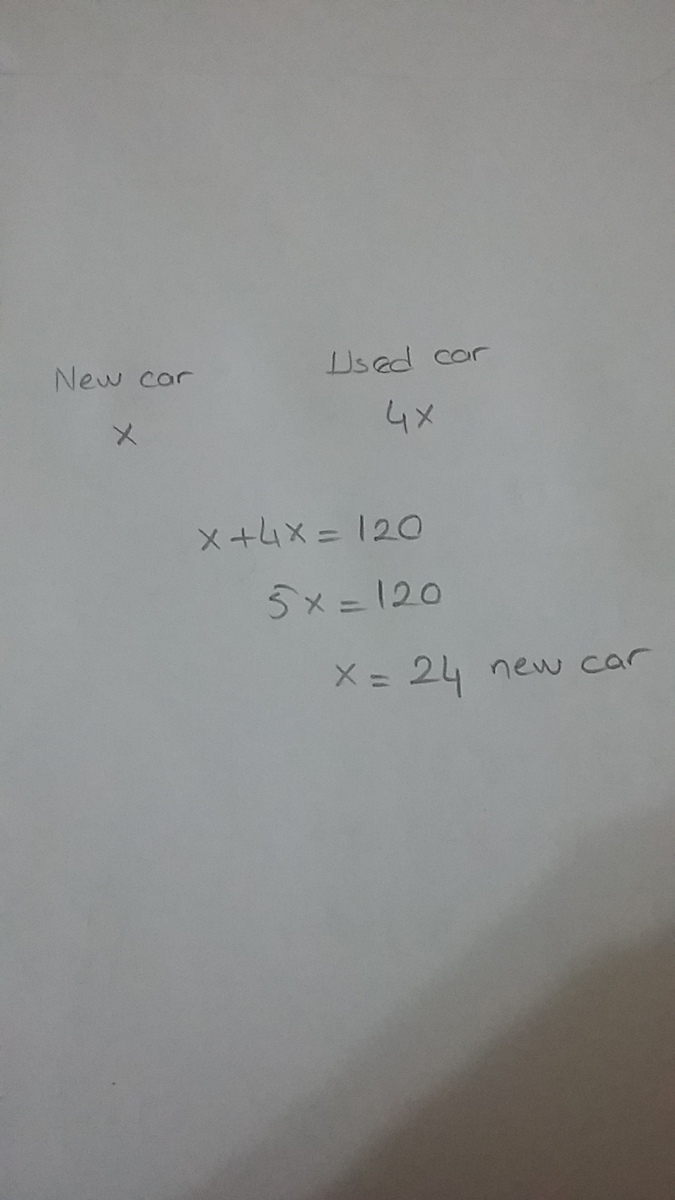 New car Used car
x 4x
x + 4x = 120
5x = 120
x = 24 new car